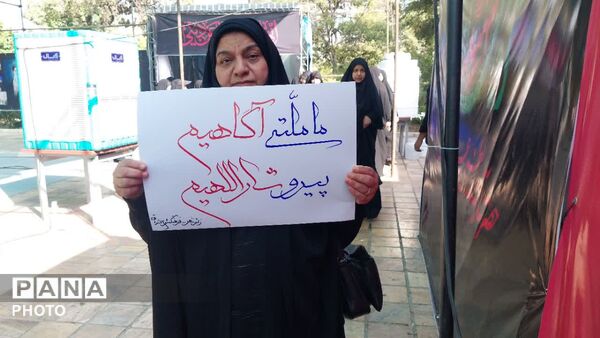 ما ملّتی آگاهیم
پیرو ثاراللهیم
PANA
PHOTO